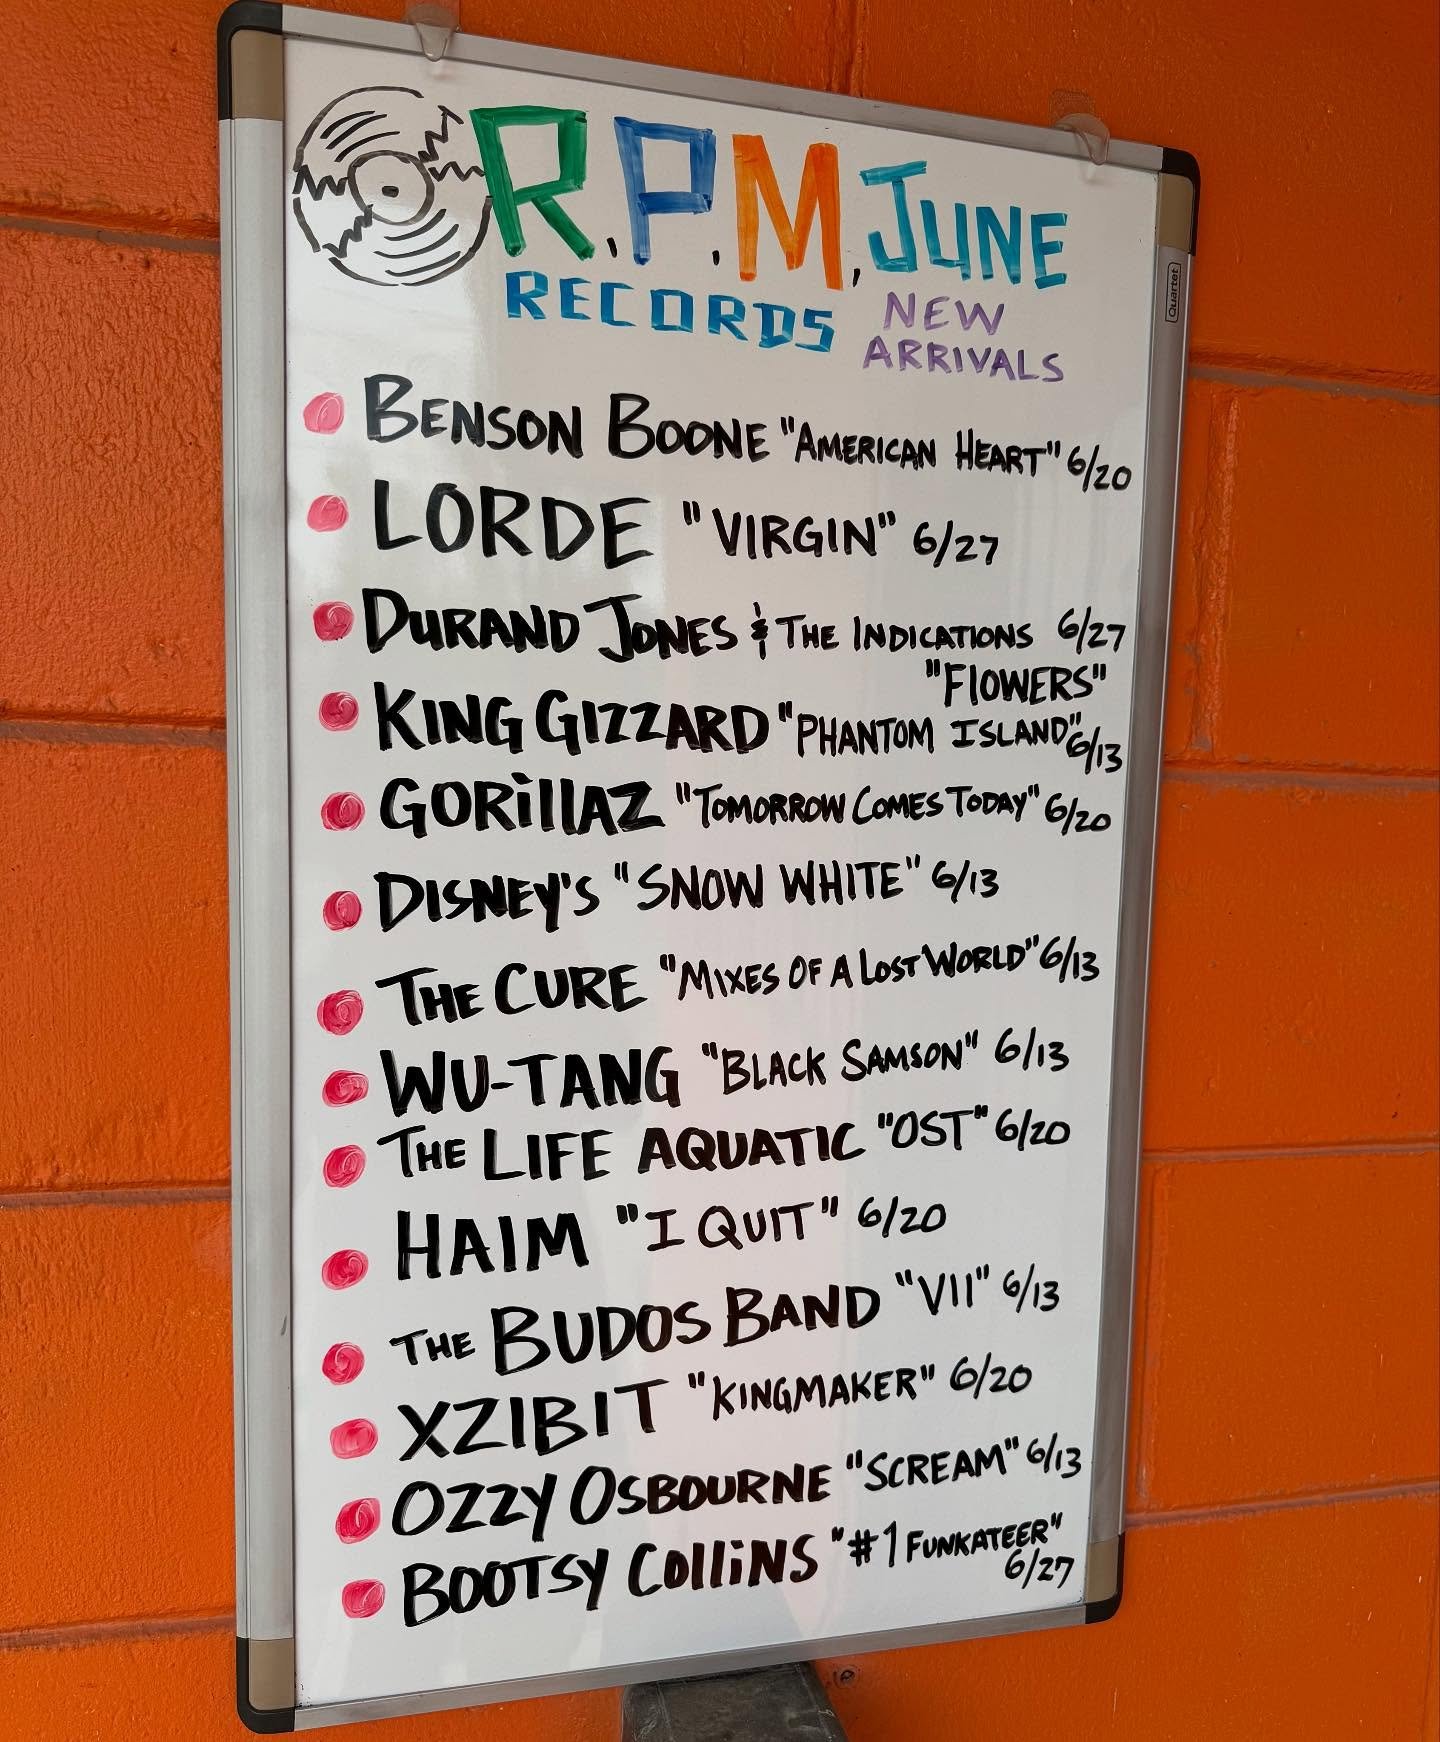 R.P.M. JUNE
RECORDS NEW
ARRIVALS
Quartet
BENSON BOONE "AMERICAN HEART" 6/20
LORDE "VIRGIN" 6/27
DURAND JONES & THE INDICATIONS 6/27
"FlOWERS"
KING GIZZARD "PHANTOM ISLAND" 6/13
GORillAZ "TOMORROW COMES TODAY" 6/20
DISNEY'S "SNOW WHITE" 6/13
THE CURE "MIXES OF A LOST WORLD" 6/13
WU-TANG "BLACK SAMSON" 6/13
THE LIFE AQUATIC "OST" 6/20
HAIM "I QUIT" 6/20
THE BUDOS BAND "VII" 6/13
XZIBIT "KINGMAKER" 6/20
OZZY OSBOURNE "SCREAM" 6/13
BOOTSY COlliNS "#1 FUNKATEER"
6/27